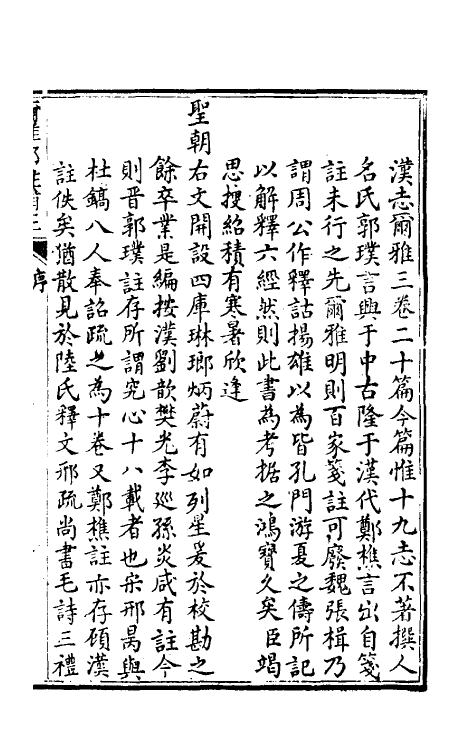 漢志爾雅三卷二十篇今篇惟十九志不著撰人
名氏郭璞言興于中古隆于漢代鄭樵言出自箋
註未行之先爾雅明則百家箋註可廢魏張楫乃
謂周公作釋詁揚雄以為皆孔門游夏之儔所記
以解釋六經然則此書為考据之鴻寶久矣臣竭
思搜紹積有寒暑欣逢
聖朝右文開設四庫琳瑯炳蔚有如列星爰於校勘之
餘卒業是編按漢劉歆樊光李巡孫炎咸有註今
則晋郭璞註存所謂究心十八載者也宋邢昺與
杜鎬八人奉詔疏之為十卷又鄭樵註亦存碩漢
註佚矣猶散見於陸氏釋文邢疏尚書毛詩三禮
序